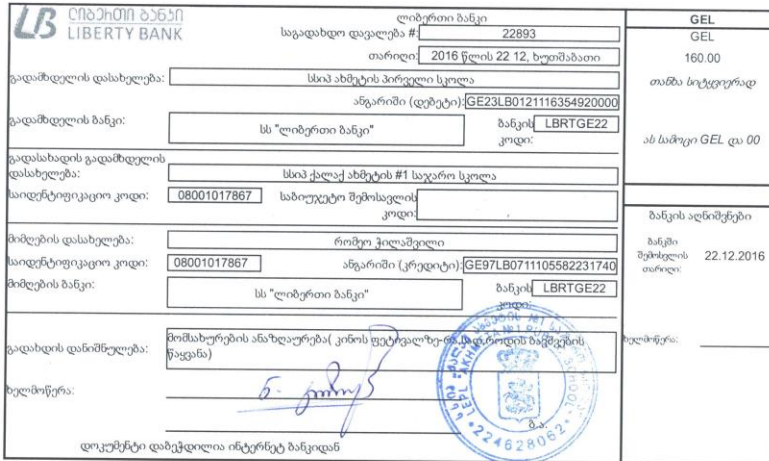 ლიბერთი ბანკი
LIBERTY BANK
ლიბერთი ბანკი
საგადახდო დავალება #: 22893
თარიღი: 2016 წლის 22 12, ხუთშაბათი
გადამხდელის დასახელება: სსიპ ახმეტის პირველი სკოლა
ანგარიში (დებეტი): GE23LB0121116354920000
გადამხდელის ბანკი: სს "ლიბერთი ბანკი" ბანკის კოდი: LBRTGE22
გადასახადის გადამხდელის
დასახელება: სსიპ ქალაქ ახმეტის #1 საჯარო სკოლა
საიდენტიფიკაციო კოდი: 08001017867 საბიუჯეტო შემოსავლის
კოდი:
მიმღების დასახელება: რომეო ჭილაშვილი
საიდენტიფიკაციო კოდი: 08001017867 ანგარიში (კრედიტი): GE97LB0711105582231740
მიმღების ბანკი: სს "ლიბერთი ბანკი" ბანკის კოდი: LBRTGE22
გადახდის დანიშნულება: მომსახურების ანაზღაურება( კინოს ფეტივალზე-რა,სად,როდის ბავშვების
წაყვანა)
ხელმოწერა:
ბ.ა.
დოკუმენტი დაბეჭდილია ინტერნეტ ბანკიდან
GEL
GEL
160.00
თანხა სიტყვიერად
ას სამოცი GEL და 00
ბანკის აღნიშვნები
ბანკში
შემოსვლის
თარიღი: 22.12.2016
ხელმოწერა:
224628062